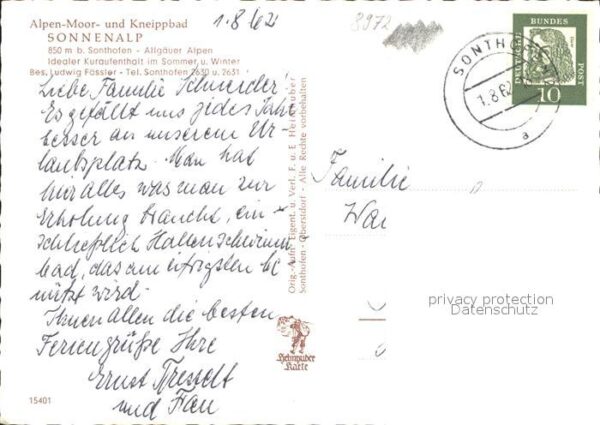 Alpen-Moor- und Kneippbad
SONNENALP
850 m b. Sonthofen - Allgäuer Alpen
Idealer Kuraufenthalt im Sommer u. Winter
Bes. Ludwig Fässler - Tel. Sonthofen 2630 u. 2631
1.8.62
8972
Liebe Familie Schneider!
Es gefällt uns jedes Jahr
besser an unserem Ur-
laubsplatz. Man hat
hier alles was man zur
Erholung braucht, ein-
schließlich Hallenschwimm-
bad, das am eifrigsten be
nützt wird.
Ihnen allen die besten
Feriengrüße Ihre
Ernst
und Frau
15401
Orig.-Aufn. Eigent. u. Verl. F. u. E. Heimhuber
Sonthofen - Oberstdorf - Alle Rechte vorbehalten
Heimhuber
Karte
DEUTSCHE
BUNDES
POST
10
SONTHO
1.8.62
a
Familie
privacy protection
Datenschutz